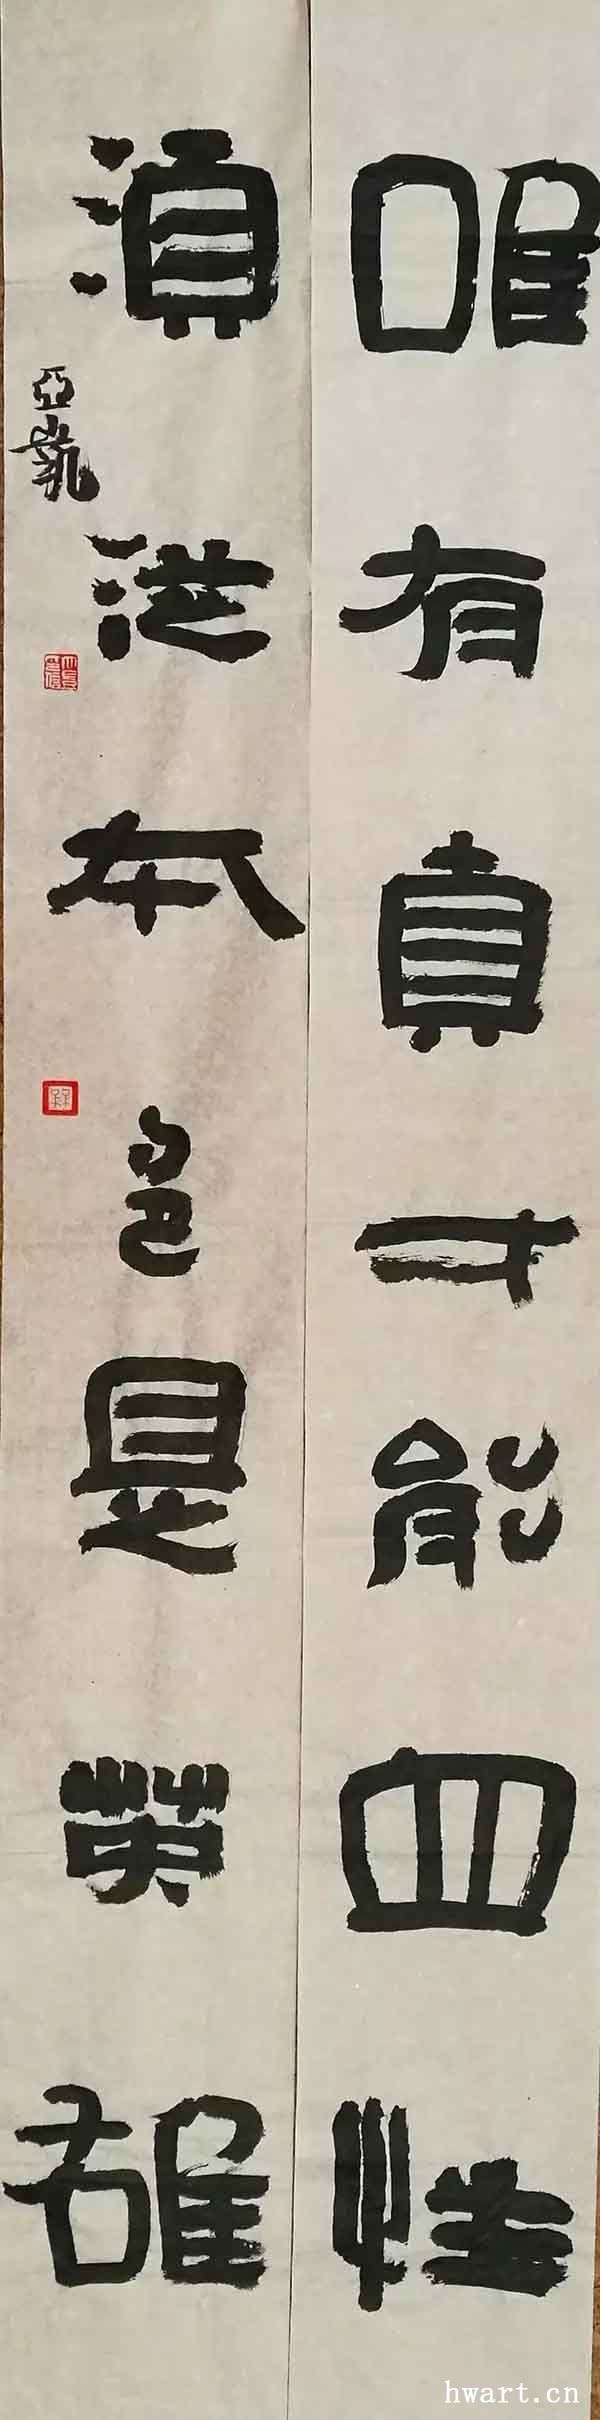 唯有真才能血性
本色是英雄
亞凱
hwart.cn